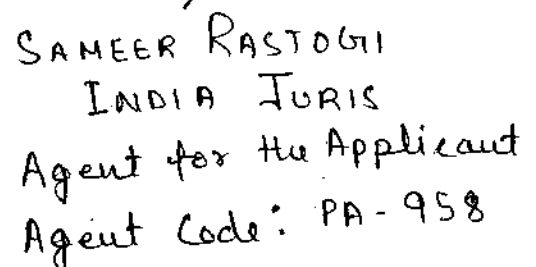 SAMEER RASTOGI
INDIA JURIS
Agent for the Applicant
Agent Code: PA-958